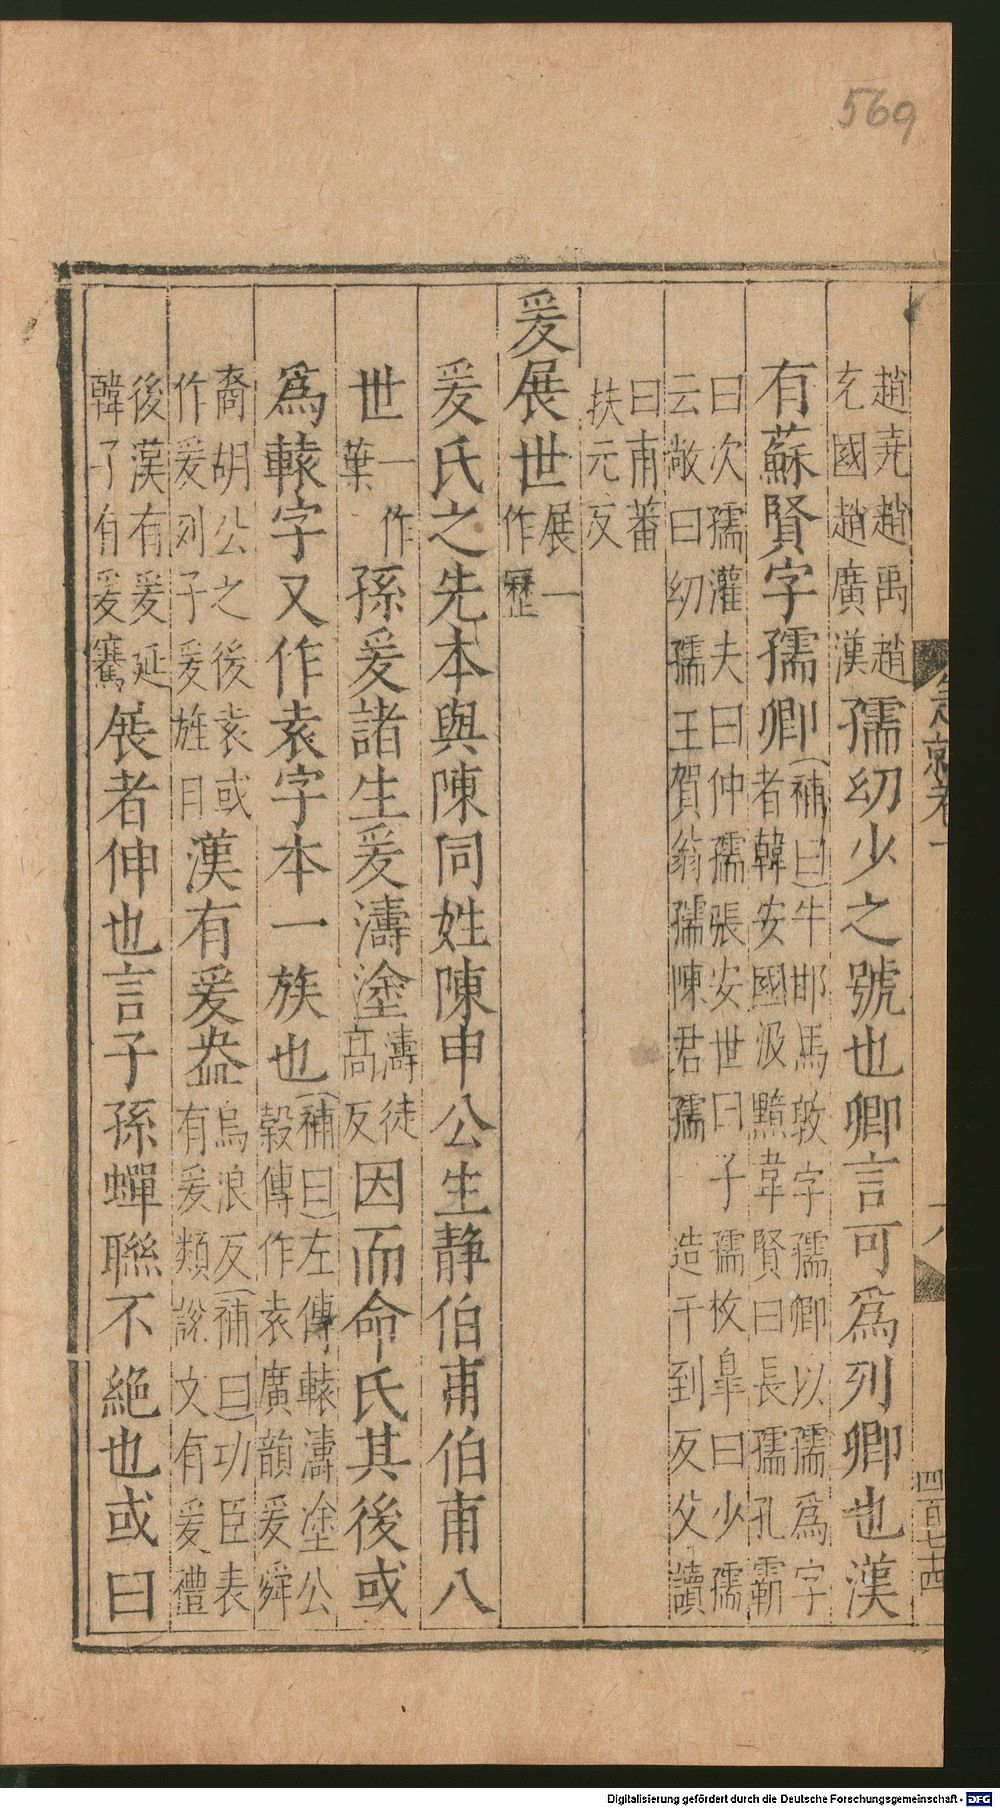 569
趙尭趙禹趙
充國趙廣漢
孺幼少之號也卿言可爲列卿也漢
有蘇賢字孺卿
(補曰)牛邯馬敦字孺卿以孺爲字
者韓安國汲黯韋賢曰長孺孔霸
曰次孺灌夫曰仲孺張安世曰子孺枚臯曰少孺
云敞曰幼孺王賀翁孺陳君孺 造千到反父讀
曰甫蕃
扶元反
爰展世
展一
作歷
爰氏之先本與陳同姓陳申公生静伯甫伯甫八
世
一作
葉
孫爰諸生爰濤塗
濤徒
高反
因而命氏其後或
爲轅字又作袁字本一族也
(補曰)左傳轅濤塗公
穀傳作袁廣韻爰舜
裔胡公之後袁或
作爰列子爰旌目
漢有爰盎
烏浪反(補曰)功臣表
有爰類說文有爰禮
後漢有爰延
韓子有爰騫
展者伸也言子孫蟬聯不絶也或曰
急就卷一
八
四百七十四
Digitalisierung gefördert durch die Deutsche Forschungsgemeinschaft - DFG